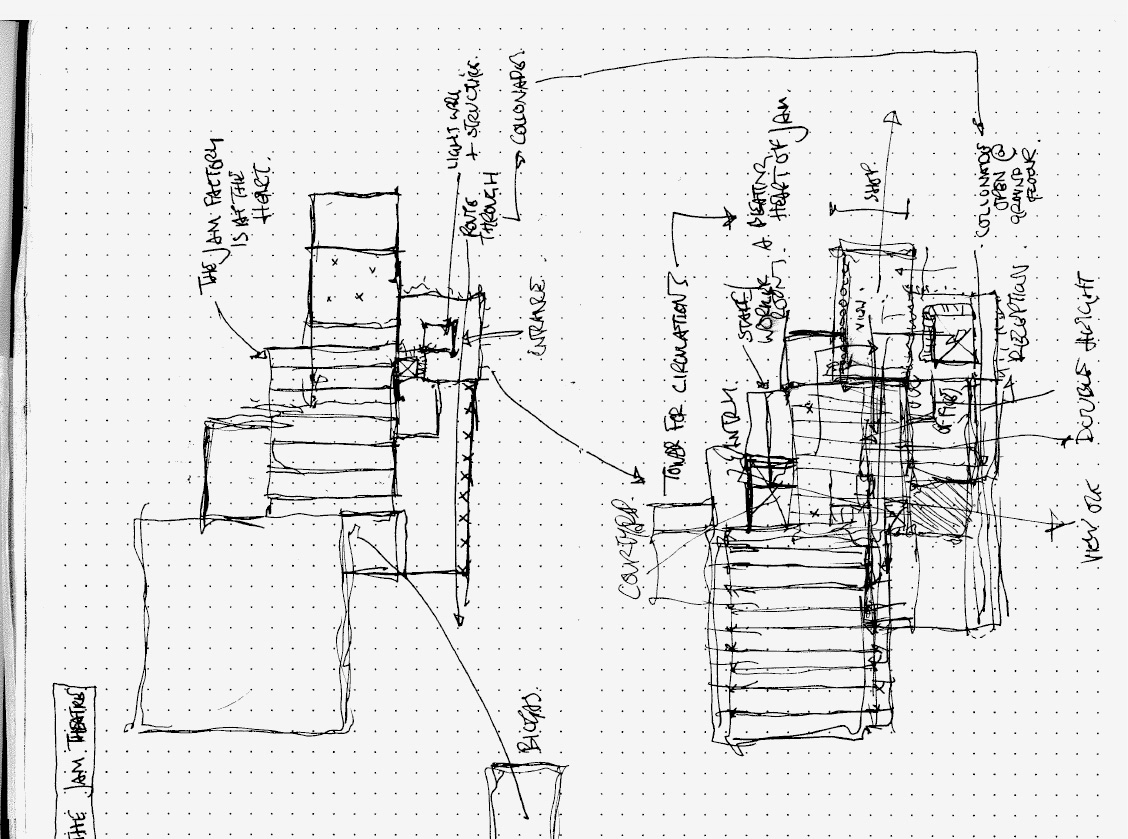 THE JAM THEATRE
THE JAM FACTORY
IS AT THE
HEART.
LIGHT WELL
+ STRUCTURE.
ROUTE
THROUGH
COLLONADES.
ENTRANCE.
BIOGAS.
COURTYARD.
TOWER FOR CIRCULATION?
A BEATING
HEART OF JAM.
STAFF/
WORKER
ROOM.
ENTRY.
SHOP.
VIEW.
COLLONADES
OPEN @
GROUND
FLOOR.
RECEPTION
OFFICE
DOUBLE HEIGHT
VIEW OUT